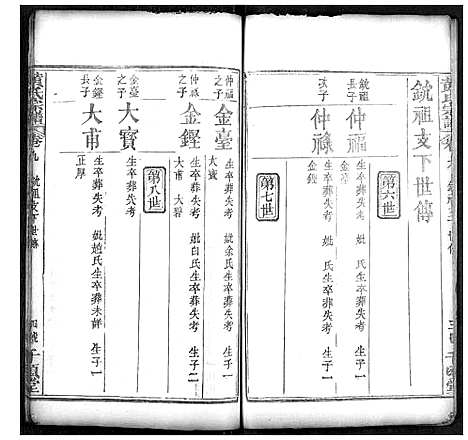 銃祖支下世傳
第六世
銃祖長子
仲福
生卒葬失考 妣氏生卒葬失考 生子一
金臺
次子
仲祿
生卒葬失考 妣氏生卒葬失考 生子一
金鏗
第七世
仲福之子
金臺
生卒葬失考 妣余氏生卒葬失考 生子一
大寶
仲祿長子
金鏗
生卒葬失考 妣白氏生卒葬失考 生子二
大甫 大
第八世
金臺之子
大寶
生卒葬失考
金鏗長子
大甫
生卒葬失考 妣趙氏生卒葬未詳 生子一
正厚
黃氏宗譜
卷九
銃祖支下世傳
千頃堂